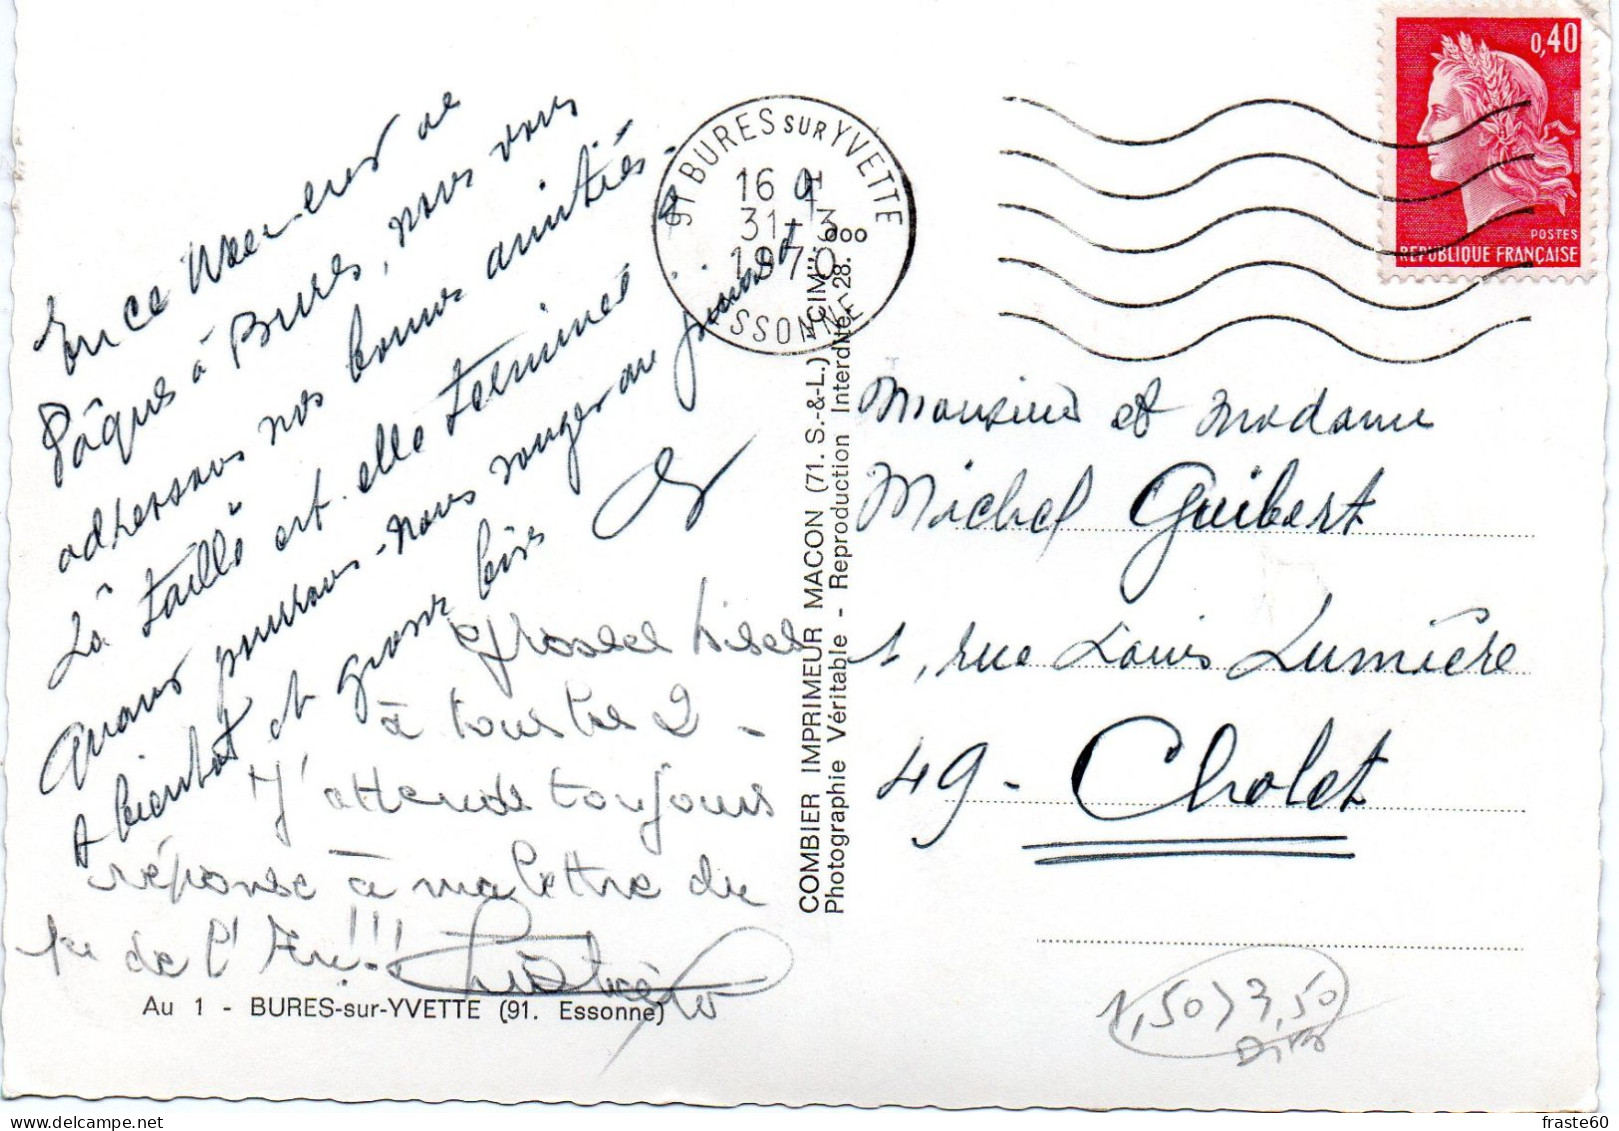 En ce Week-end de
Pâques à Bures, nous vous
adhessons nos bonnes amitiés.
La taille est-elle terminée
Quand pourrons-nous
A bientot et grosse bise
Grosses bises
à tous les 2 -
J'attends toujours
réponse à ma lettre du
1er de l'An!!!
Au 1 - BURES-sur-YVETTE (91. Essonne)
COMBIER IMPRIMEUR MACON (71. S.-&-L.) "CIM"
Photographie Véritable - Reproduction Interdite
91 BURES SUR YVETTE
16 H
31-3
1970
ESSONNE
0,40
POSTES
REPUBLIQUE FRANÇAISE
Monsieur et Madame
Michel Guibert
1, rue Louis Lumière
49 - Cholet
1,50 > 3,50
fraste60